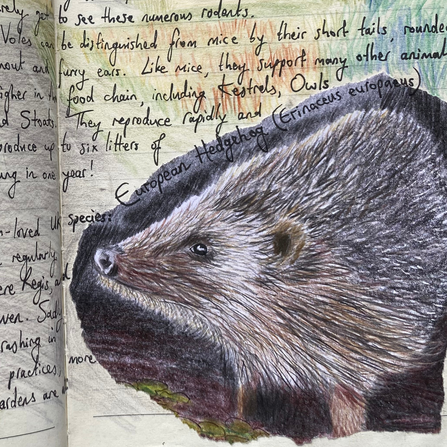 rely get to see these numerous rodents.
Voles can be distinguished from mice by their short tails, rounded
nout and furry ears. Like mice, they support many other animal
igher in th food chain, including Kestrels, Owls
d Stoats. They reproduce rapidly and
produce up to six litters of
ng in one year!
European Hedgehog (Erinaceus europaeus)
n-loved UK species:
regularly,
ere Regis, and
ven. Sad
rashing in
practices, more
ardens are